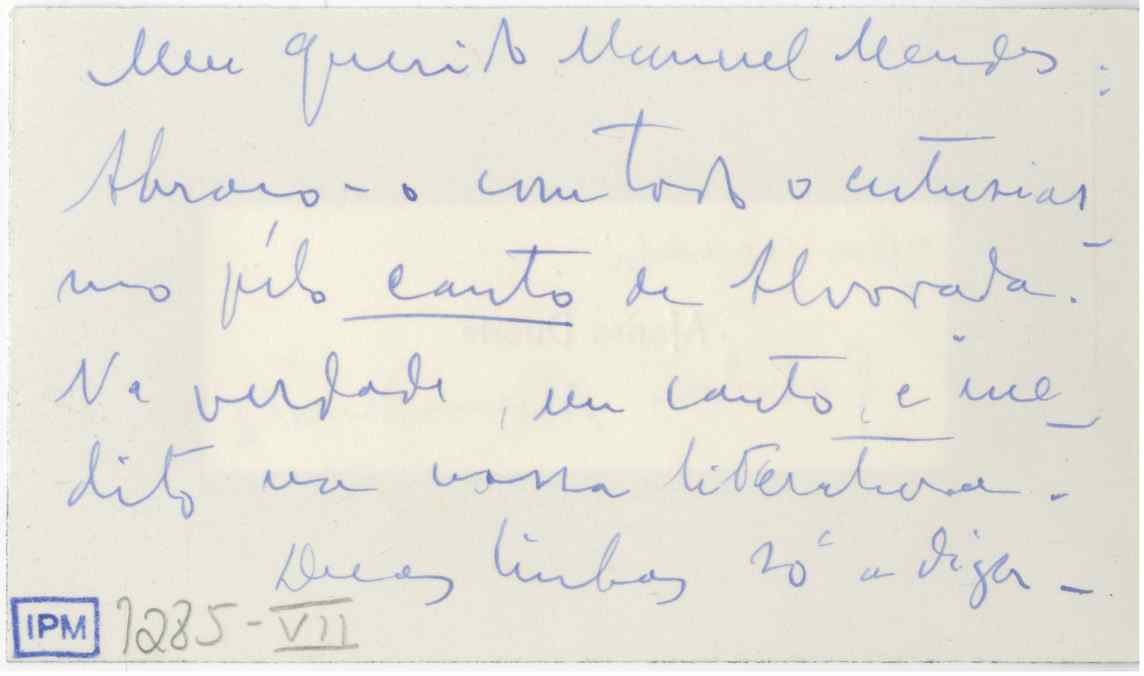 Meu querido Manuel Mendes:
Abraço-o com todo o entusias-
mo pélo canto da Alvorada.
Na verdade, um canto, e iné-
dito na nossa literatura.
Duas linhas só a dizer-
IPM 1285-VII